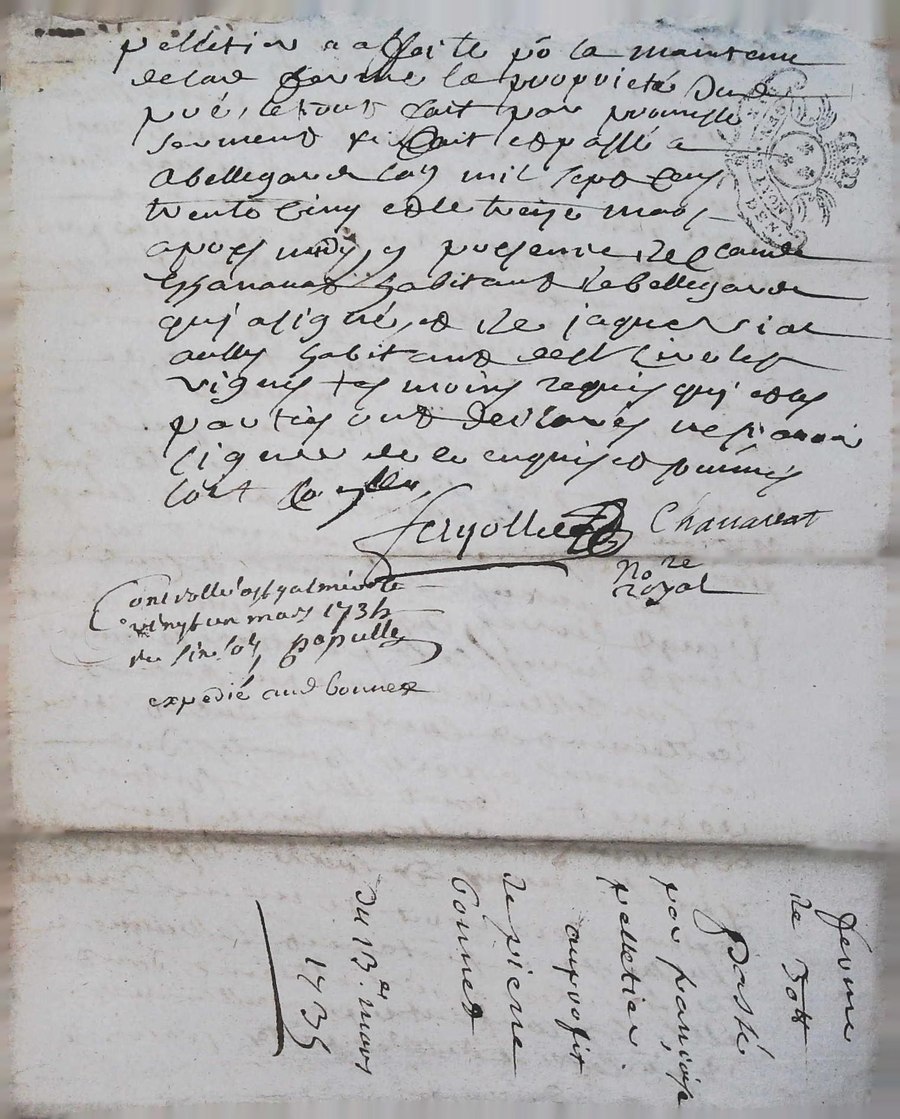 pelletier a affaité po la maintenue
de lad ferme la propriété dud
pré, le tout fait par promesse
serment &c fait et passé a
abellegarde lan mil sept cens
trente cinq et le treize mars
apres midy, en presence de claude
Chanavat habitant de bellegarde
qui a signé, et de jaque vial
aussy habitant de St
vignes tesmoins requis qui et les
parties ont declarés ne scavoir
signer de ce enquis et sommés
soit controllé
Chanavat
Nore
royal
Controllé a St galmier le
vingt un mars 1735
six sols
expedié aud bonnet
ferme
de 30lt
Passé
par françois
pelletier
au profit
de pierre
Bonnet
du 13.e mars
1735